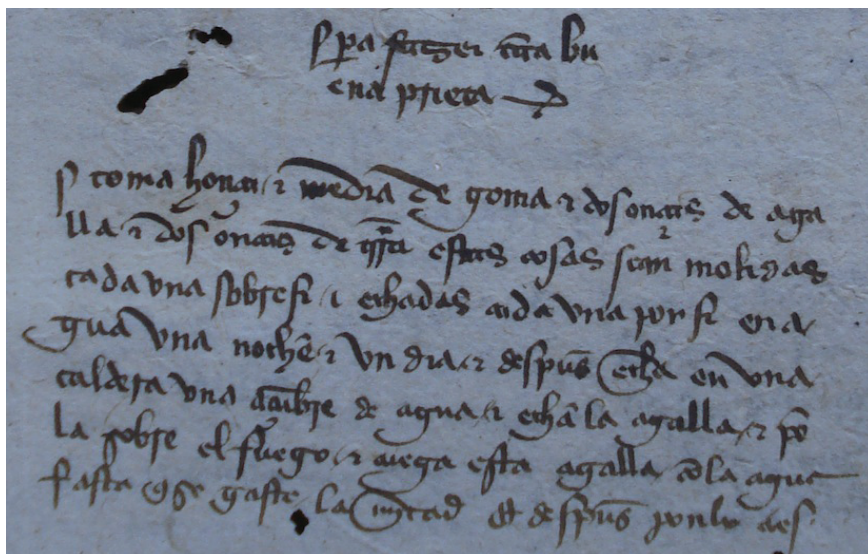 pa fazer tīta bu
ena prieta
toma honça & media de goma & dos onças de aga
lla & dos onças de estas cosas sean molidas
cada vna sobresi & echadas cada vna por si en a
gua vna noche & vn dia & despues echa en vna
caldera vna açūbre de agua & echa la agalla & pō
la sobre el fuego & cuega esta agalla cō la agua
fasta q̄ se gaste la mitad & despues ponlo a es